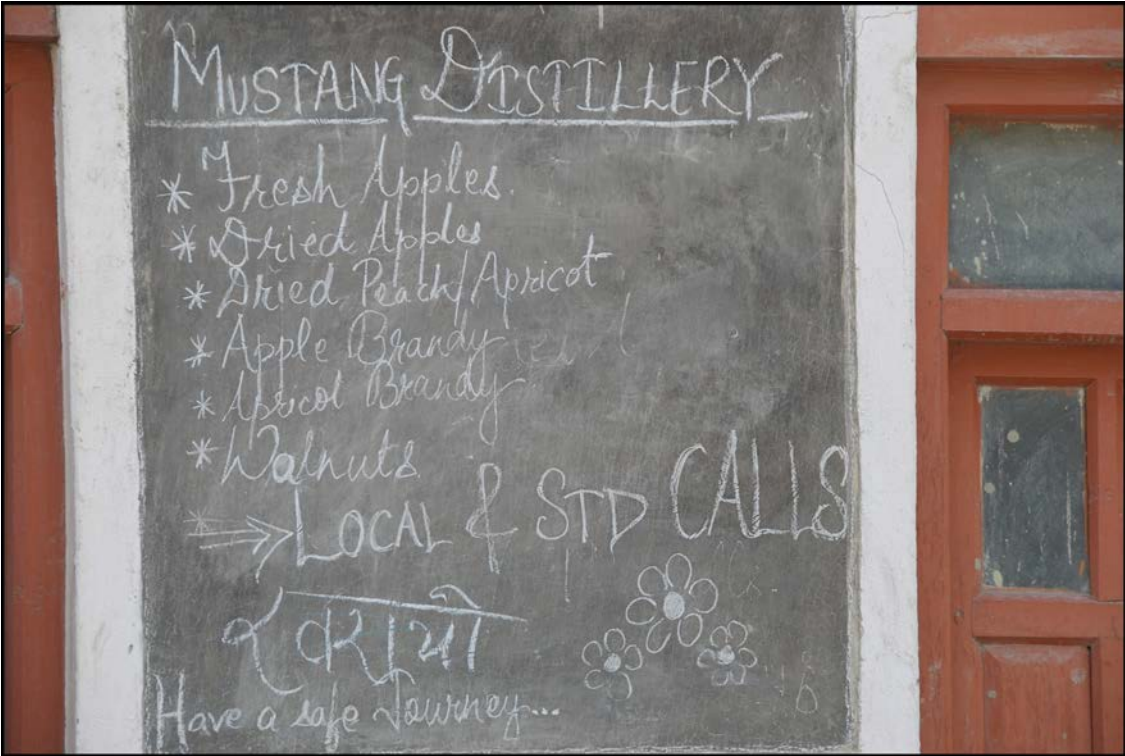 MUSTANG DISTILLERY
* Fresh Apples.
* Dried Apples
* Dried Peach/Apricot
* Apple Brandy
* Apricot Brandy
* Walnuts
LOCAL & STD CALLS
Have a safe Journey...